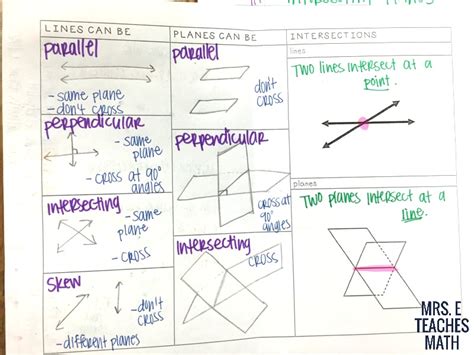 LINES CAN BE
parallel
- same plane
- don't cross
perpendicular
- same
plane
- cross at 90°
angles
intersecting
- same
plane
- cross
skew
- don't
cross
- different planes
PLANES CAN BE
parallel
don't
cross
perpendicular
cross at
90°
angles
intersecting
cross
INTERSECTIONS
lines
TWO lines intersect at a
point.
planes
TWO planes intersect at a
line.
MRS. E
TEACHES
MATH